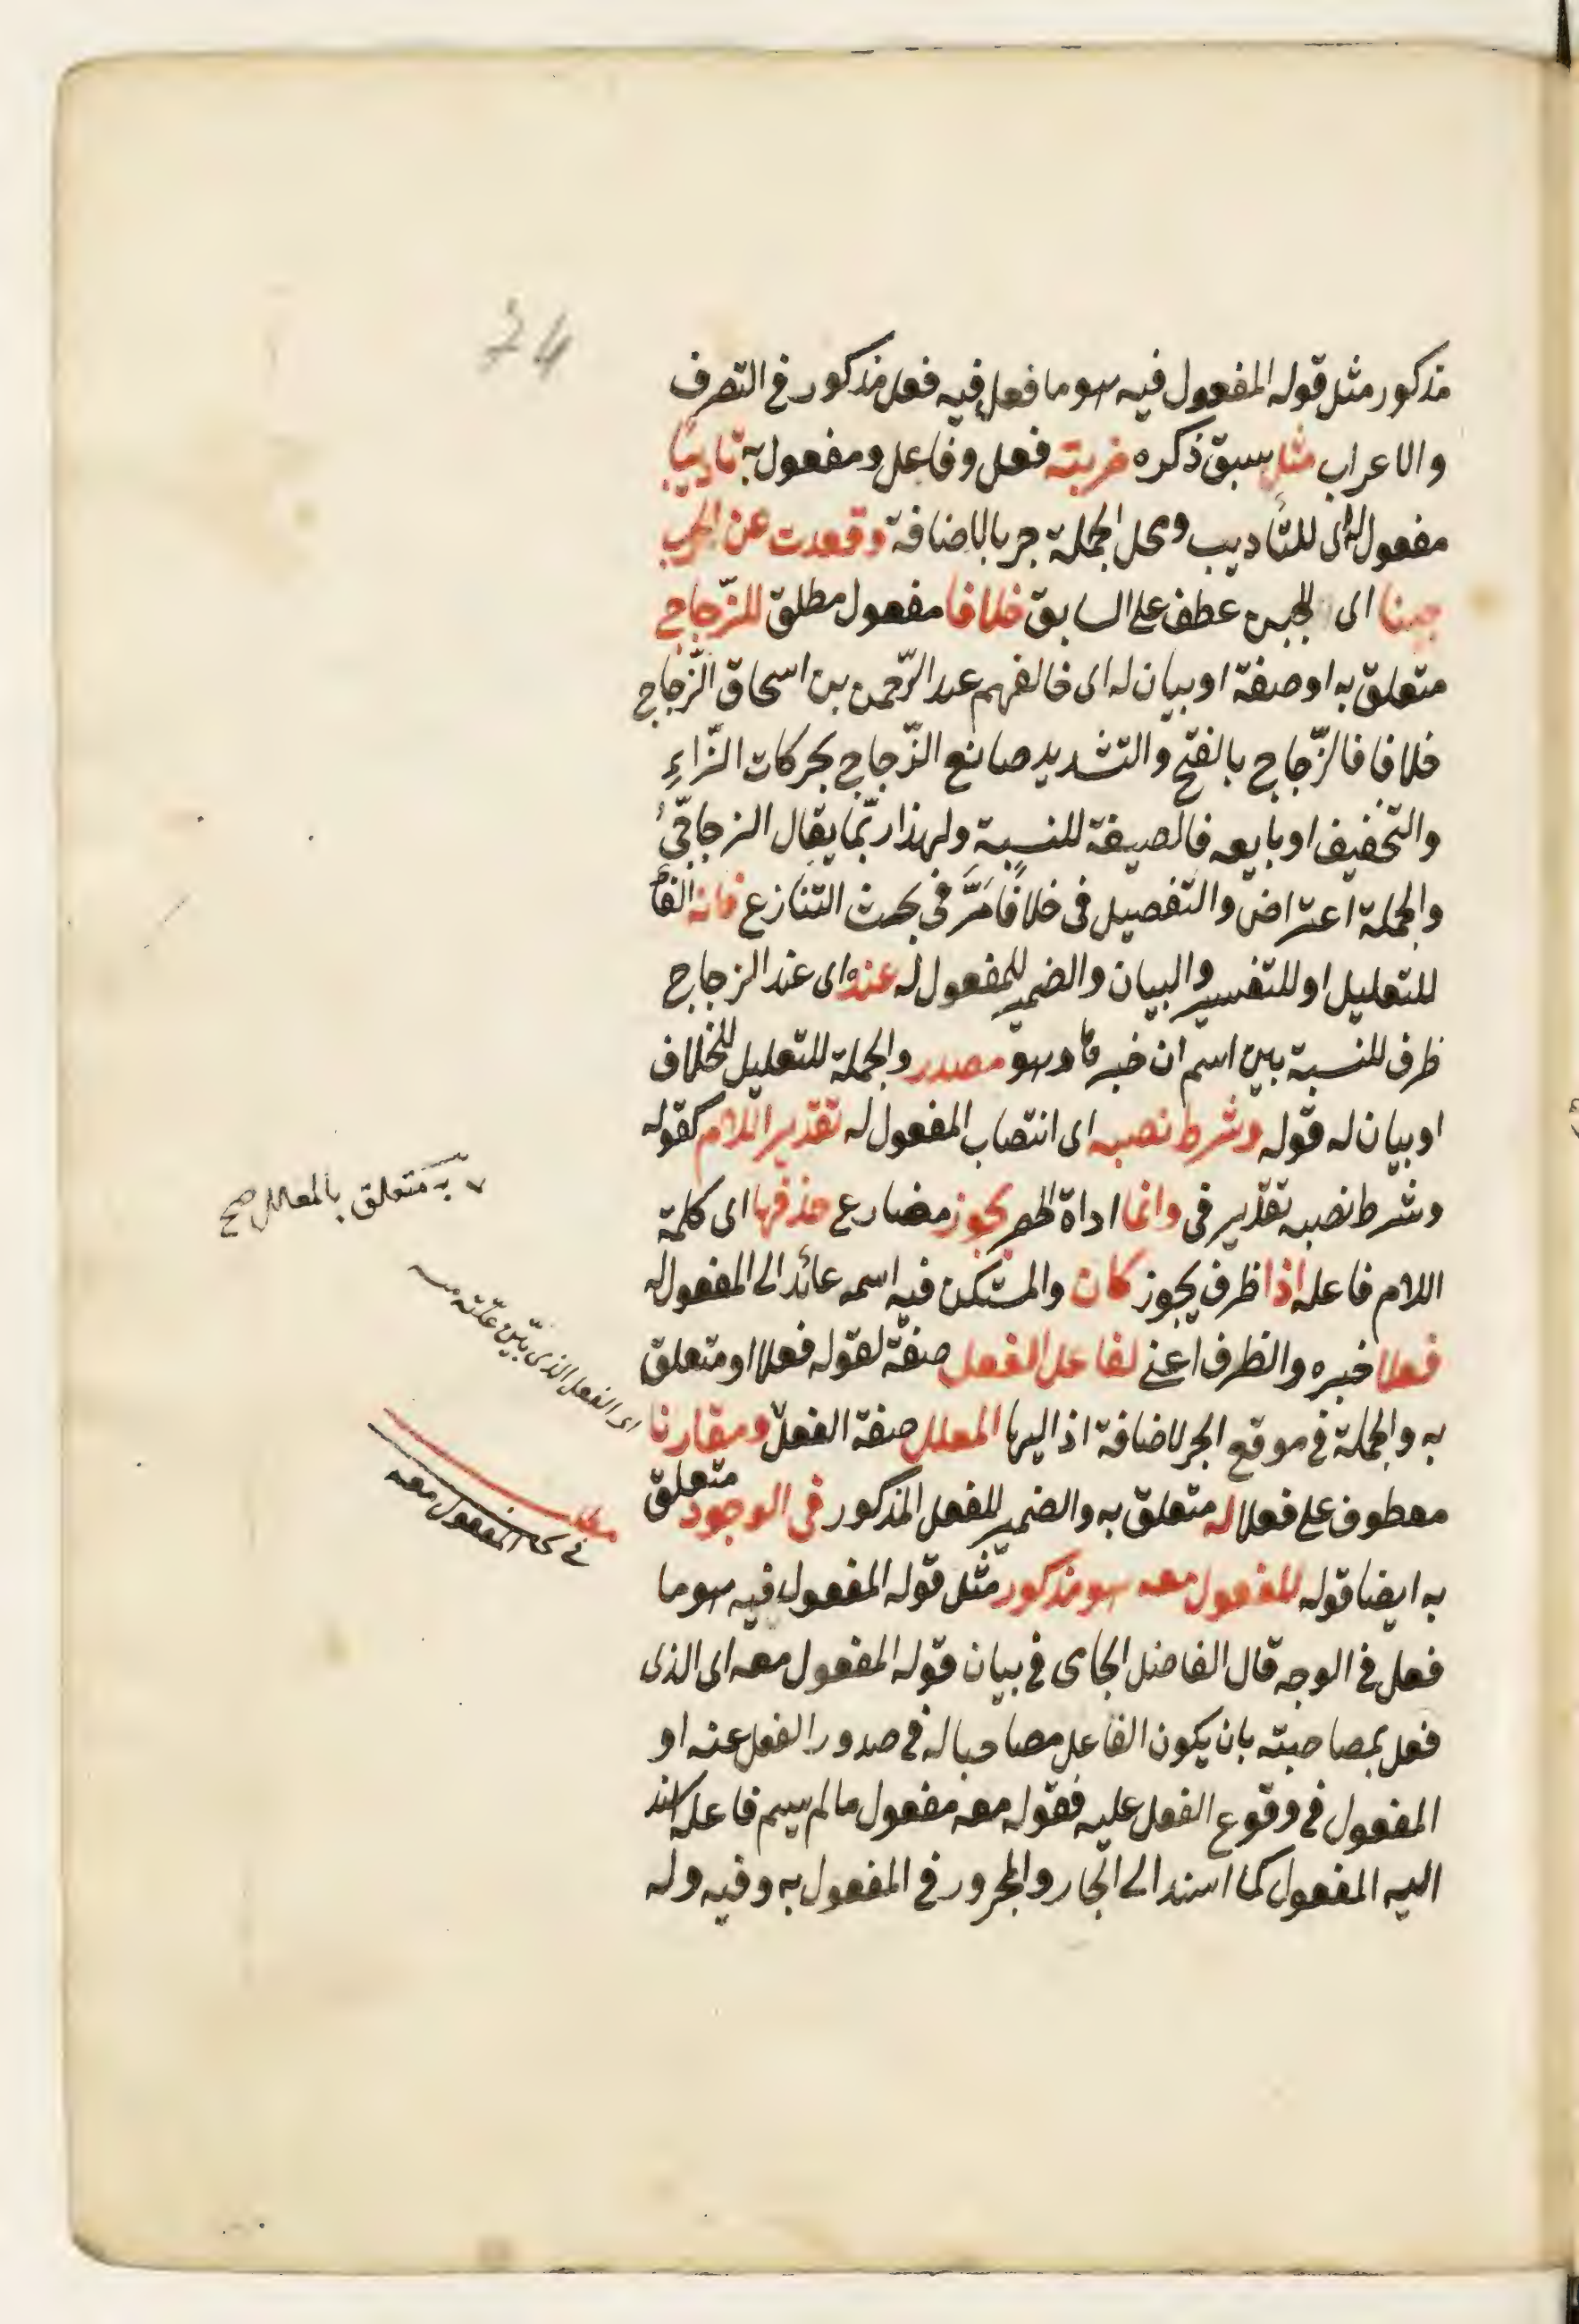 74
مذكور مثل قوله المفعول فيه هو ما فعل فيه فعل مذكور في التصرف
والاعراب مثل سبق ذكره ضربته فعل وفاعل ومفعول به تاديبا
مفعول له اى للتأديب ومحل الجملة جر بالاضافة وقعدت عن الحرب
جبنا اى للجبن عطف على السابق خلافا مفعول مطلق للزّجاج
متعلق به او صفة او بيان له اى خالفهم عبد الرّحمن بن اسحاق الزّجاج
خلافا فالزّجاج بالفتح والتشديد صانع الزّجاج بحركات الزّاءِ
والتخفيف او بايعه فالصيغة للنسبة ولهذا ربّما يقال الزجاجّى
والجملة اعتراض والتفصيل فى خلافًا مَرَّ فى بحث التنازع فانه الفأ
للتعليل او للتفسير والبيان والضمير للمفعول له عنده اى عند الزجاج
ظرف للنسبة بين اسم ان خبرها وهو مصدر والجملة للتعليل للخلاف
او بيان له قوله وشرط نصبه اى انتصاب المفعول له تقدير اللام كقوله
وشرط نصبه تقدير فى وانما اداة الحصر يجوز مضارع حذفها اى كلمة
اللام فاعله اذا ظرف يجوز كان والمستكن فيه اسمه عائد الى المفعول له
فعلا خبره والظرف اعنى لفاعل الفعل صفة لقوله فعلا او متعلق
به والجملة فى موقع الجر لاضافة اذ اليها المعلل صفة الفعل ومقارنا
معطوف على فعلا له متعلق به والضمير للفعل المذكور فى الوجود متعلق
به ايضا قوله المفعول معه هو مذكور مثل قوله المفعول فيه هو ما
فعل فى الوجه قال الفاضل الجامى فى بيان قوله المفعول معه اى الذى
فعل بمصاحبته بان يكون الفاعل مصاحبا له فى صدور الفعل عنه او
المفعول فى وقوع الفعل عليه فقوله معه مفعول ما لم يسم فاعله اسند
اليه المفعول كما اسند الى الجار والمجرور فى المفعول به وفيه وله
به متعلق بالمعلل صح
اى الفعل الذى بيّن علّته
فى المفعول معه